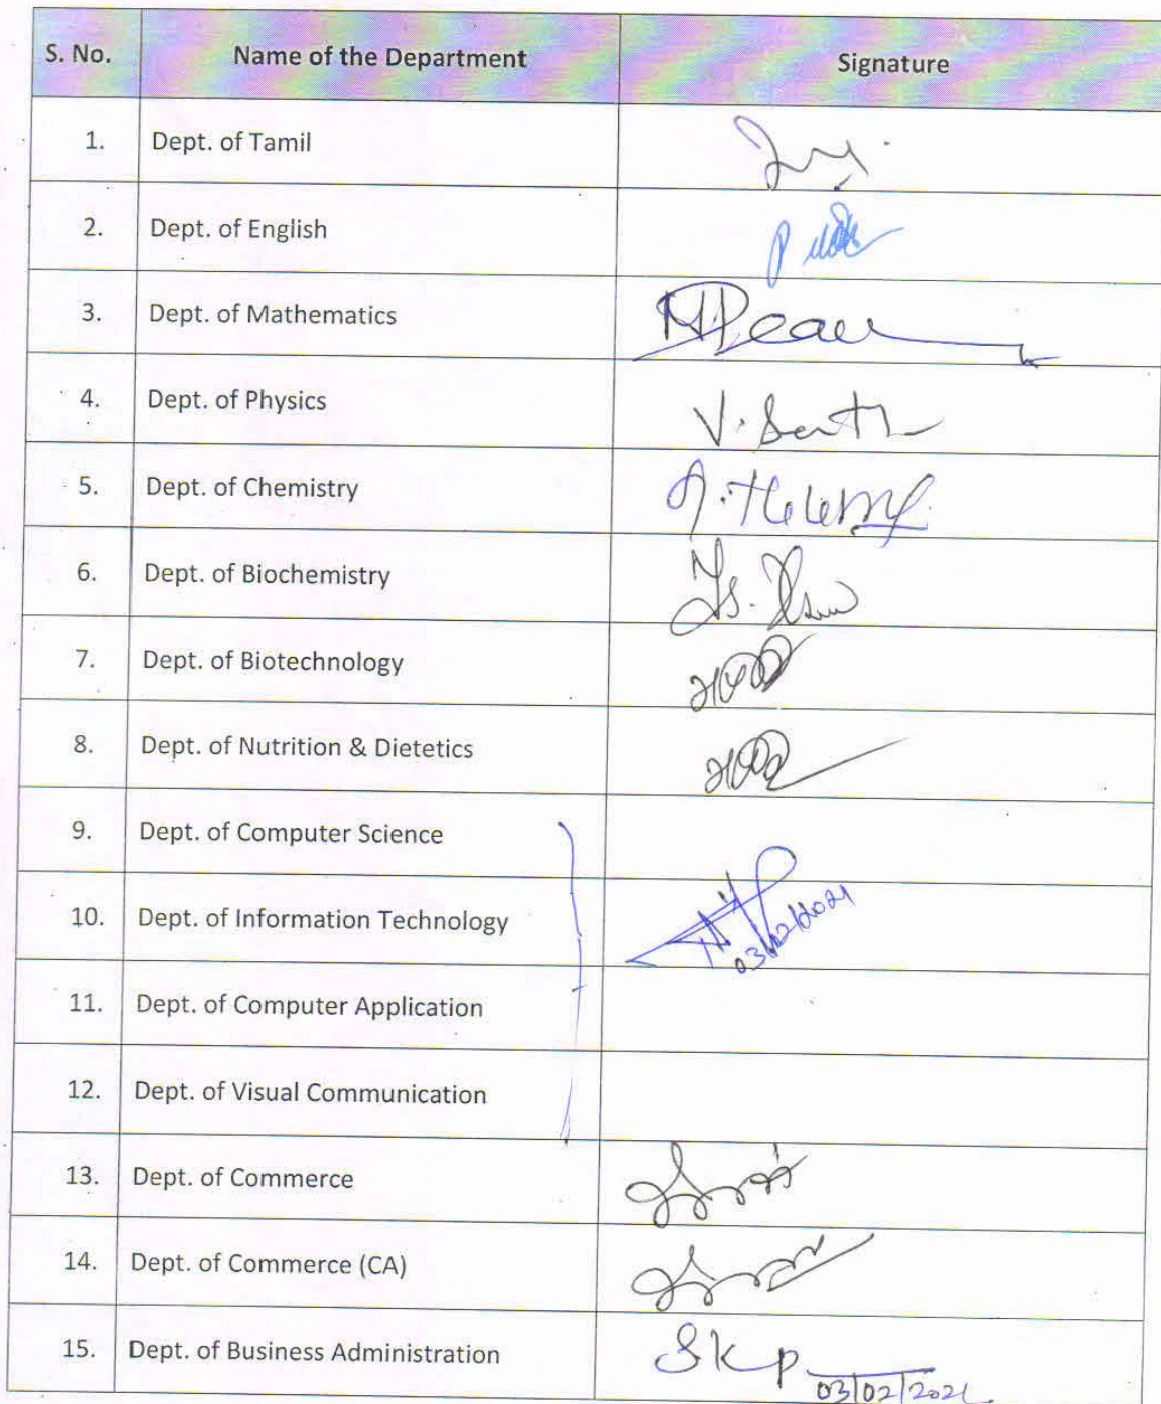 S. No. Name of the Department Signature
1. Dept. of Tamil
2. Dept. of English
3. Dept. of Mathematics
4. Dept. of Physics
5. Dept. of Chemistry
6. Dept. of Biochemistry
7. Dept. of Biotechnology
8. Dept. of Nutrition & Dietetics
9. Dept. of Computer Science
10. Dept. of Information Technology 03/02/2021
11. Dept. of Computer Application
12. Dept. of Visual Communication
13. Dept. of Commerce
14. Dept. of Commerce (CA)
15. Dept. of Business Administration Skp 03/02/2021